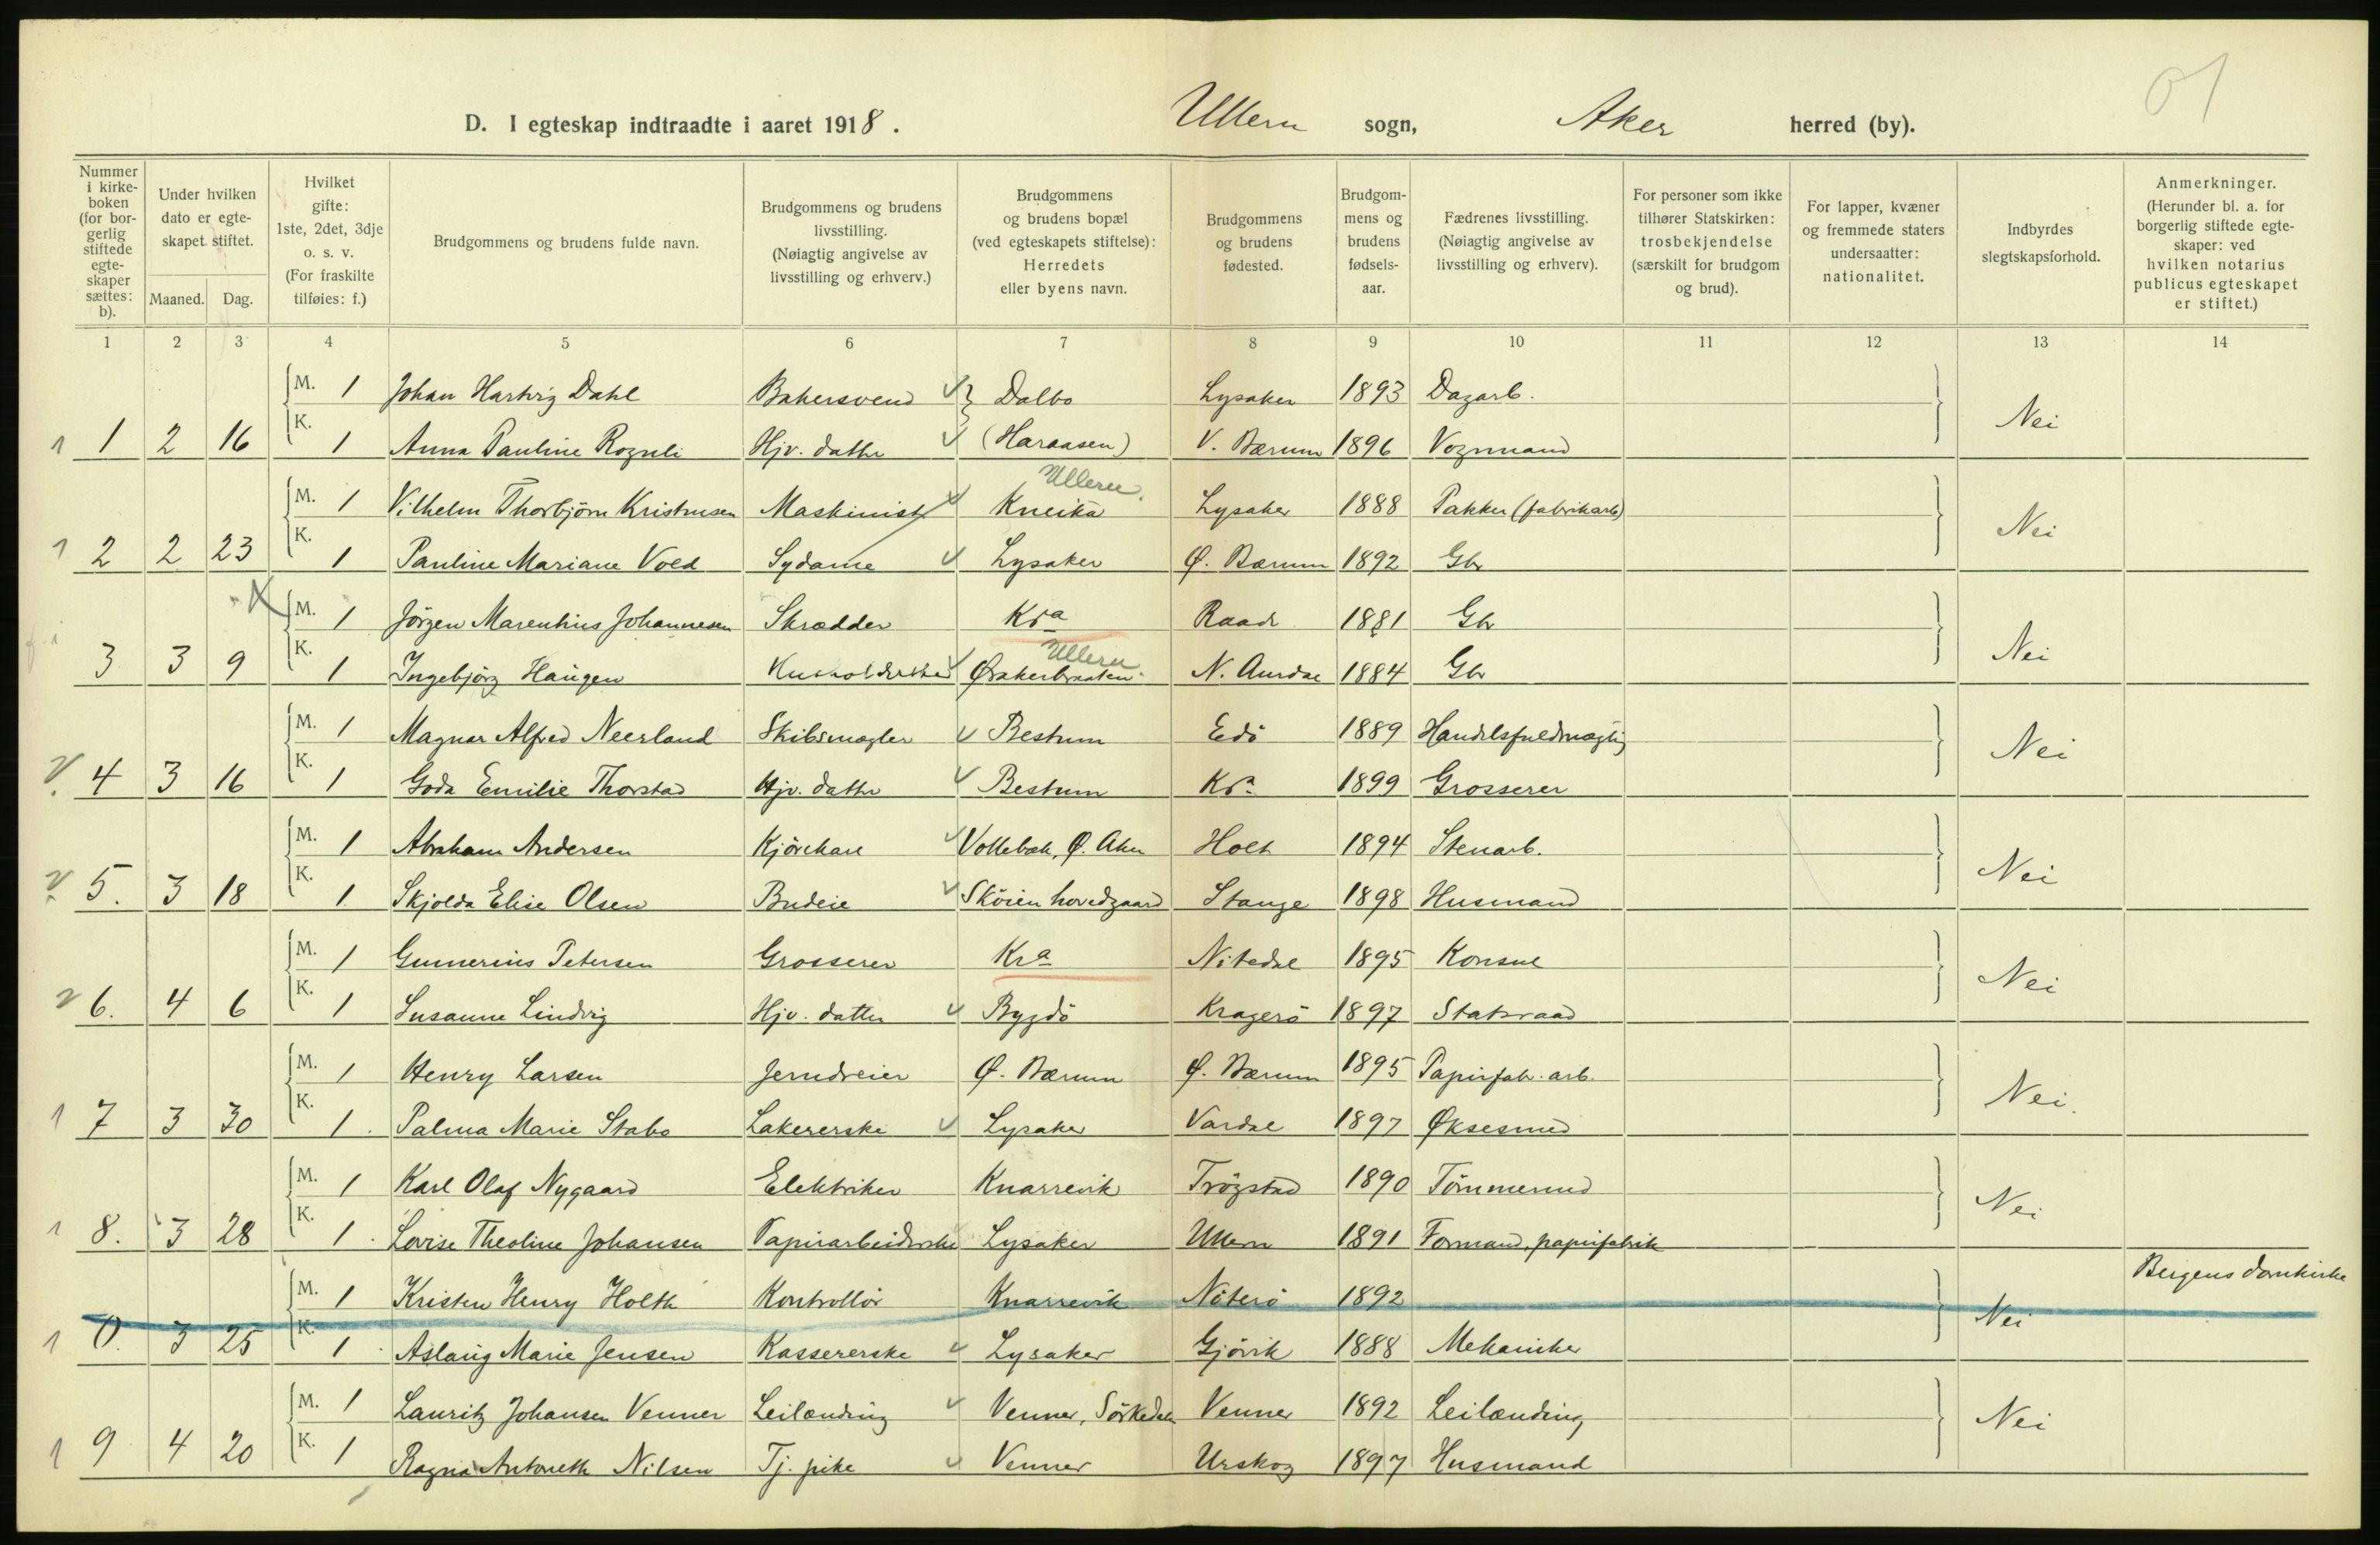 01
D. I egteskap indtraadte i aaret 1918. Ullern sogn, Aker herred (by).
Nummer i kirkeboken (for borgerlig stiftede egteskaper sættes: b).
Under hvilken dato er egteskapet stiftet.
Maaned. Dag.
Hvilket gifte: 1ste, 2det, 3dje o. s. v. (For fraskilte tilføies: f.)
Brudgommens og brudens fulde navn.
Brudgommens og brudens livsstilling. (Nøiagtig angivelse av livsstilling og erhverv.)
Brudgommens og brudens bopæl (ved egteskapets stiftelse): Herredets eller byens navn.
Brudgommens og brudens fødested.
Brudgommens og brudens fødselsaar.
Fædrenes livsstilling. (Nøiagtig angivelse av livsstilling og erhverv).
For personer som ikke tilhører Statskirken: trosbekjendelse (særskilt for brudgom og brud).
For lapper, kvæner og fremmede staters undersaatter: nationalitet.
Indbyrdes slegtskapsforhold.
Anmerkninger. (Herunder bl. a. for borgerlig stiftede egteskaper: ved hvilken notarius publicus egteskapet er stiftet.)
1 2 3 4 5 6 7 8 9 10 11 12 13 14
M. 1 Johan Hartvig Dahl Bakersvend Dalbo Lysaker 1893 Dagarb.
1 1 2 16 K. 1 Anna Pauline Rognli Hjv. datter (Haraasen) V. Bærum 1896 Vognmand Nei
Ullern
M. 1 Vilhelm Thorbjörn Kristensen Maskinist Kneika Lysaker 1888 Pakker (fabrikarb)
1 2 2 23 K. 1 Pauline Mariane Vold Sydame Lysaker Ø. Bærum 1892 Gbr Nei
M. 1 Jörgen Marenhius Johannesen Skrædder Kra Raade 1881 Gbr
Ullern
3 3 9 K. 1 Ingebjörg Haugen Husholderske Ørakerbraaten N. Aurdal 1884 Gbr Nei
M. 1 Magnar Alfred Neerland Skibsmægler Bestum Edö 1889 Handelsfuldmægtig
4 3 16 K. 1 Goda Emilie Thorstad Hjv. datter Bestum Kra 1899 Grosserer Nei
M. 1 Abraham Andersen Kjörekar Vollebæk, Ø. Aker Holt 1894 Stenarb.
5. 3 18 K. 1 Skjolda Elise Olsen Budeie Sköien hovedgaard Stange 1898 Husmand Nei
M. 1 Gunnerius Petersen Grosserer Kra Nitedal 1895 Konsul
6. 4 6 K. 1 Susanne Lindvig Hjv. datter Bygdö Kragerö 1897 Statsraad Nei
M. 1 Henry Larsen Jerndreier Ø. Bærum Ø. Bærum 1895 Papirfabr. arb.
1 7 3 30 K. 1 Palma Marie Stabo Lakererske Lysaker Vardal 1897 Øksesmed Nei.
M. 1 Karl Olaf Nygaard Elektriker Knarrevik Trögstad 1890 Tömmermd
1 8. 3 28 K. 1 Lovise Theoline Johansen Papirarbeiderske Lysaker Ullern 1891 Formand, papirfabrik Nei
M. 1 Kristen Henry Holth Kontrollör Knarrevik Nöterö 1892 Bergens domkirke
1 0. 3 25 K. 1 Aslaug Marie Jensen Kassererske Lysaker Gjövik 1888 Mekaniker Nei
M. 1 Lauritz Johansen Venner Leilænding Venner, Sörkedalen Venner 1892 Leilænding
1 9 4 20 K. 1 Ragna Antonette Nilsen Tj. pike Venner Urskog 1897 Husmand Nei